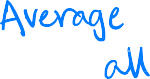 Average
all